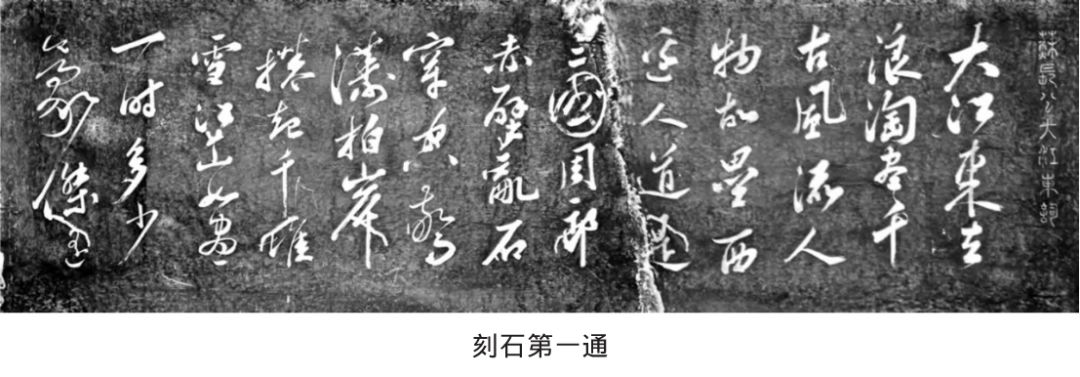 蘇長公大江東詞
大江東去
浪淘盡千
古風流人
物故壘西
邊人道是
三國周郎
赤壁亂石
穿空驚
濤拍岸
捲起千堆
雪江山如畫
一時多少
豪傑遙
刻石第一通